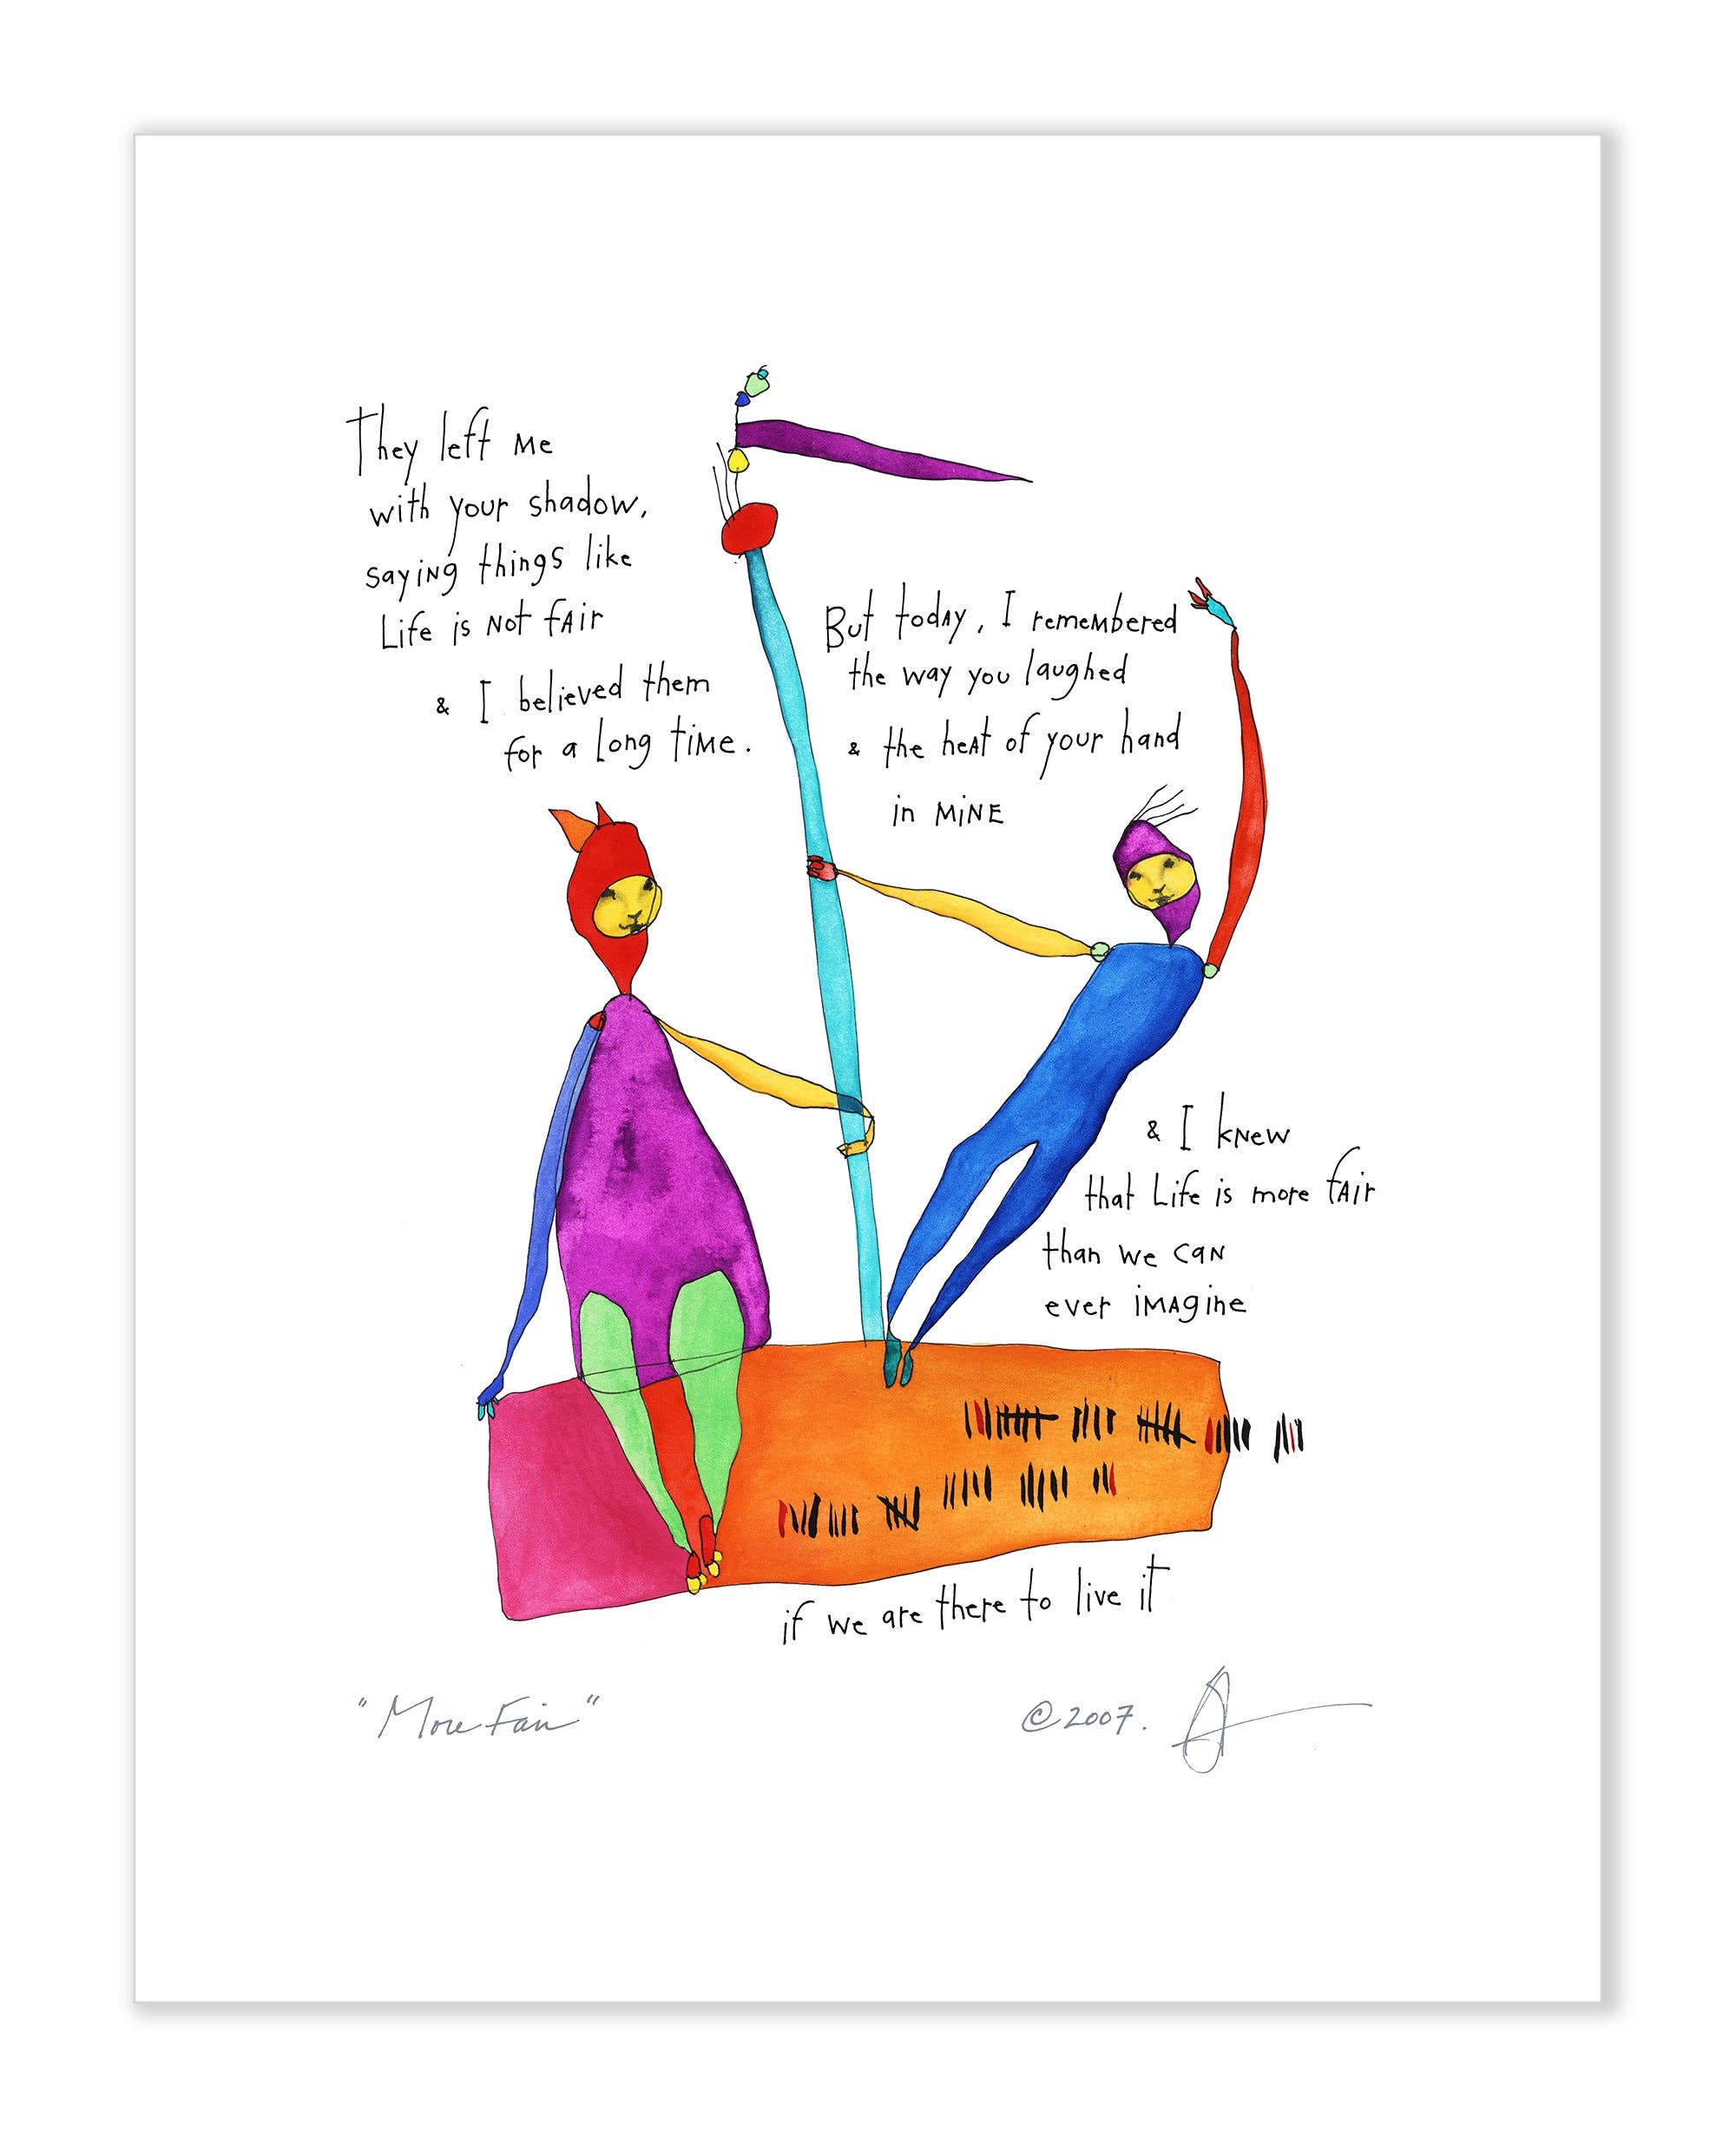 They left me
with your shadow,
saying things like
Life is not fair
& I believed them
for a long time.
But today, I remembered
the way you laughed
& the heat of your hand
in mine
& I knew
that Life is more fair
than we can
ever imagine
if we are there to live it
"More Fair"
©2007.